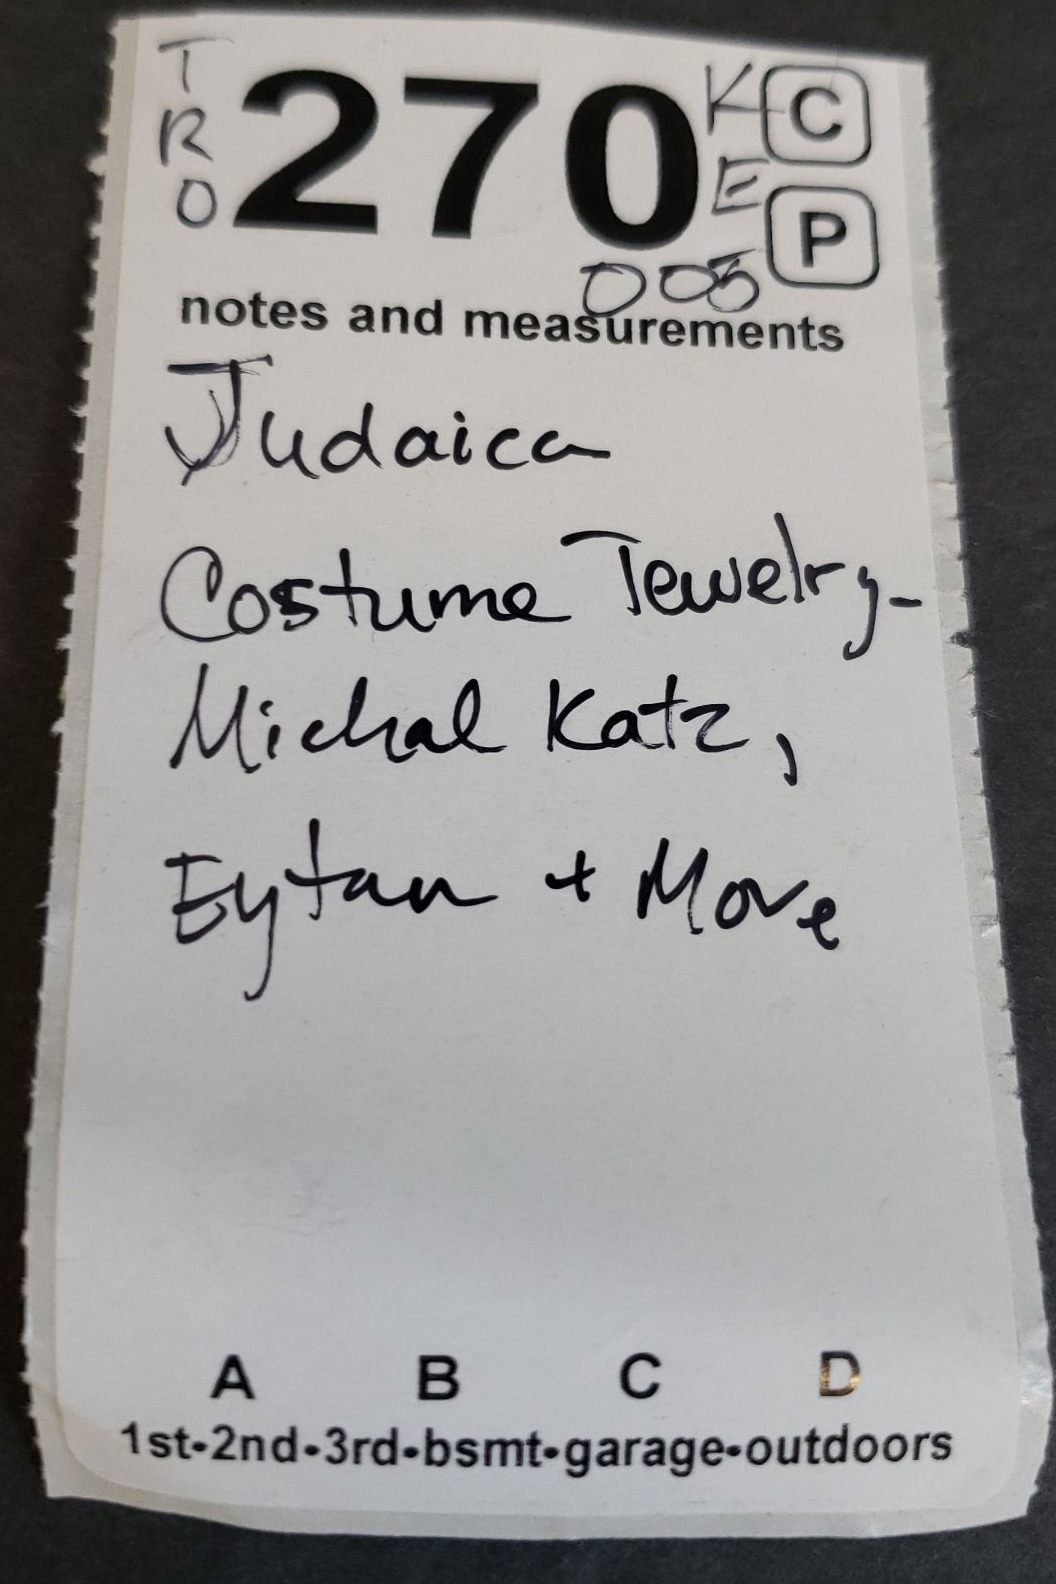 T
R
O
270
K
E
C
P
005
notes and measurements
Judaica
Costume Jewelry-
Michal Katz,
Eytan + More
A B C D
1st•2nd•3rd•bsmt•garage•outdoors